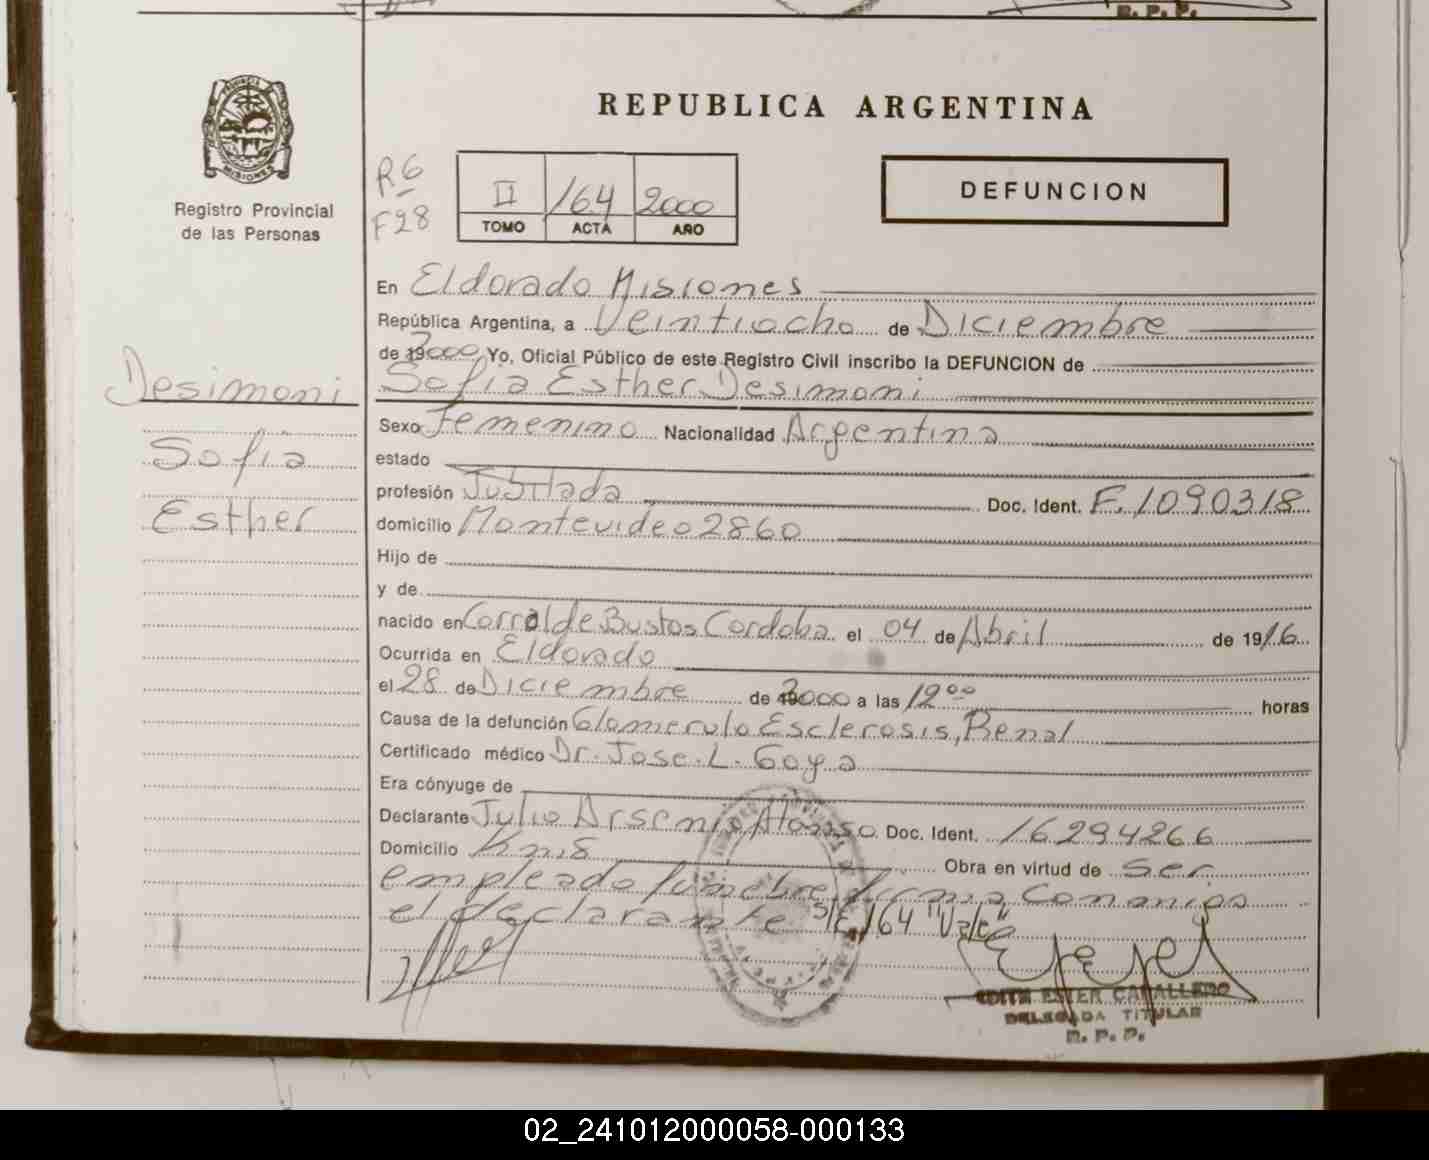 R. P. P.
PROVINCIA
MISIONES
Registro Provincial
de las Personas
REPUBLICA ARGENTINA
DEFUNCION
R6
F28
II 164 2000
TOMO ACTA AÑO
En Eldorado Misiones
República Argentina, a Veintiocho de Diciembre
de 2000 Yo, Oficial Público de este Registro Civil inscribo la DEFUNCION de
Sofia Esther Desimoni
Desimoni
Sofia
Esther
Sexo Femenino Nacionalidad Argentina
estado
profesión Jubilada Doc. Ident. F. 1090318
domicilio Montevideo 2860
Hijo de
y de
nacido en Corral de Bustos Cordoba el 04 de Abril de 1916
Ocurrida en Eldorado
el 28 de Diciembre de 2000 a las 12 00 horas
Causa de la defunción Glomerulo Esclerosis, Renal
Certificado médico Dr. Jose. L. Goya
Era cónyuge de
Declarante Julio Arsenio Alonso Doc. Ident. 16294266
Domicilio Km8 Obra en virtud de ser
empleado fúnebre firma Conmigo
el declarante S/E/64 "Vale"
EDITH ESTER CABALLERO
DELEGADA TITULAR
R. P. P.
02_241012000058-000133